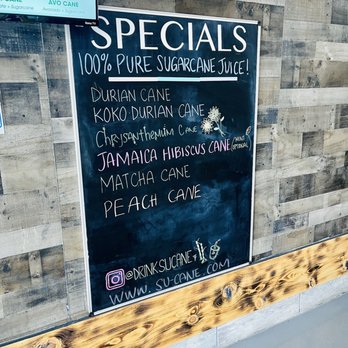 AVO CANE
SPECIALS
100% PURE SUGARCANE JUICE!
DURIAN CANE
KOKO DURIAN CANE
Chrysanthemum CANE
JAMAICA HIBISCUS CANE
OPTIONAL
MATCHA CANE
PEACH CANE
@DRINKSUCANE
WWW.SU-CANE.COM